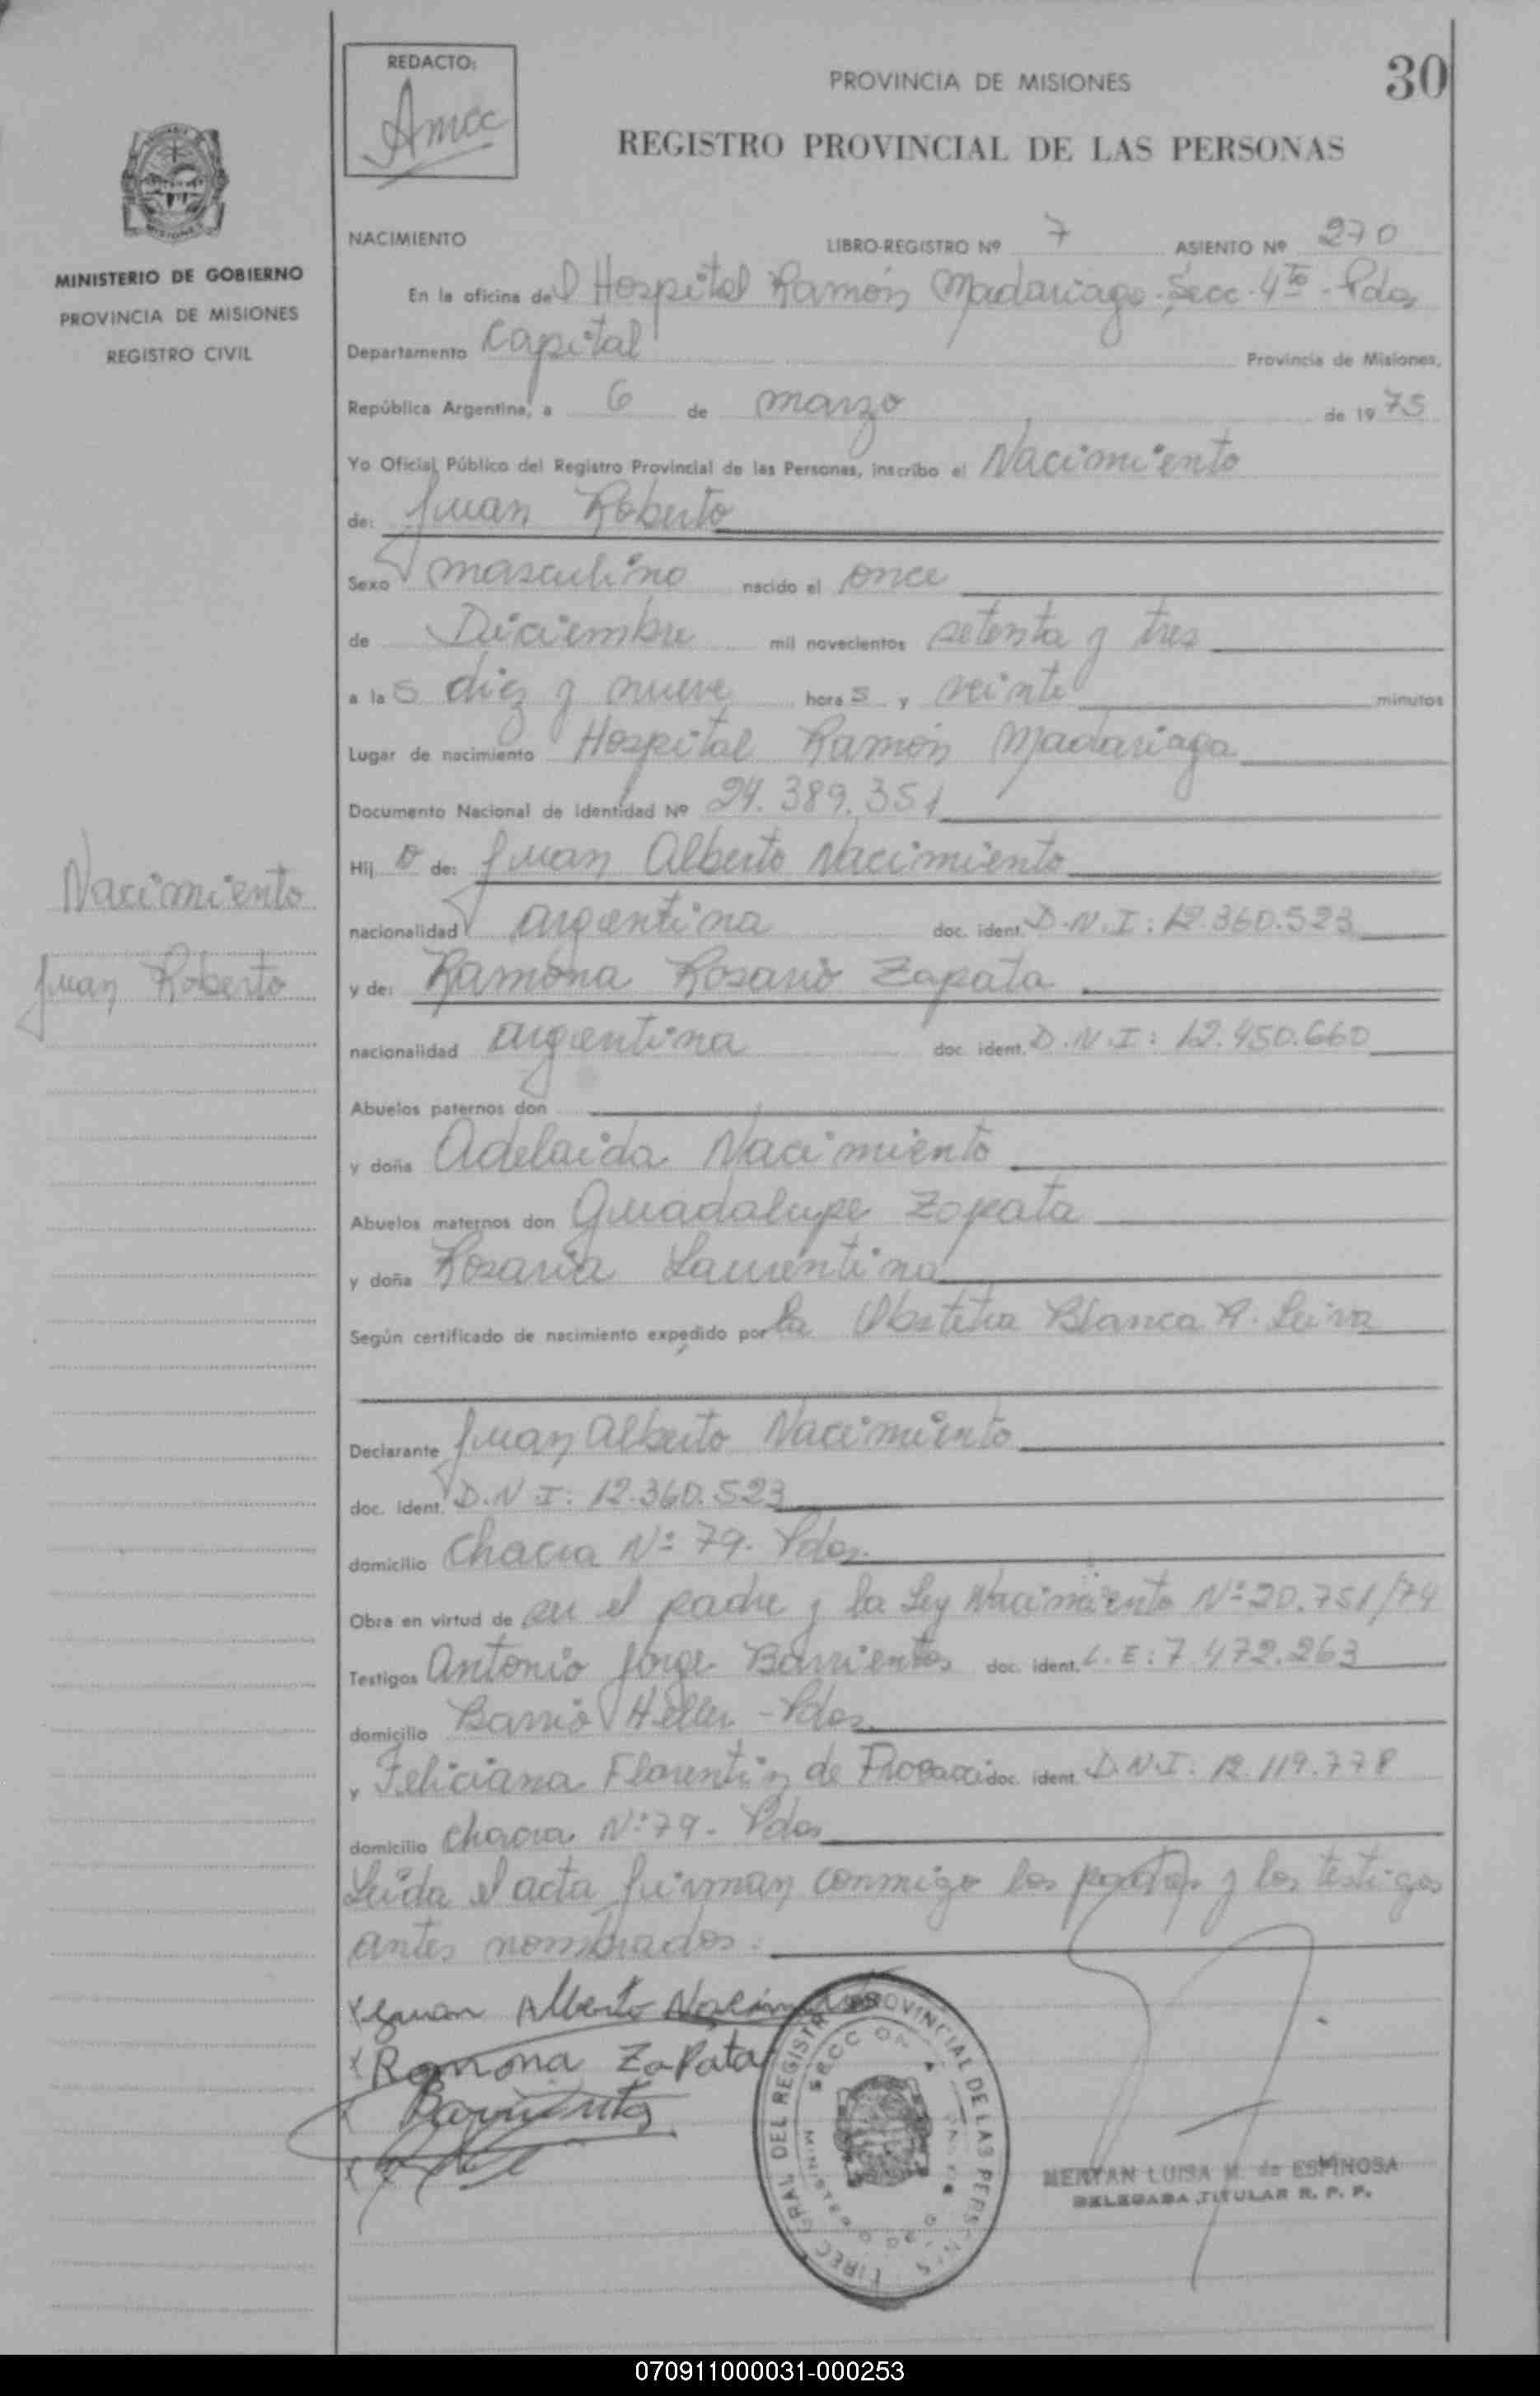 REDACTO:
Amcc
PROVINCIA DE MISIONES
30
REGISTRO PROVINCIAL DE LAS PERSONAS
MISIONES
MINISTERIO DE GOBIERNO
PROVINCIA DE MISIONES
REGISTRO CIVIL
NACIMIENTO LIBRO-REGISTRO Nº 7 ASIENTO Nº 270
En la oficina del Hospital Ramón Madariaga-Secc-4ta-Pdas
Departamento Capital Provincia de Misiones,
República Argentina, a 6 de marzo de 1975
Yo Oficial Público del Registro Provincial de las Personas, inscribo el Nacimiento
de: Juan Roberto
Sexo masculino nacido el once
de Diciembre mil novecientos setenta y tres
a las diez y nueve horas y veinte minutos
Lugar de nacimiento Hospital Ramón Madariaga
Documento Nacional de Identidad Nº 24.389.351
Hijo de: Juan Alberto Nacimiento
Nacimiento
Juan Roberto
nacionalidad argentina doc. ident. D.N.I: 12.360.523
y de: Ramona Rosario Zapata
nacionalidad argentina doc. ident. D.N.I: 12.450.660
Abuelos paternos don
y doña Adelaida Nacimiento
Abuelos maternos don Guadalupe Zapata
y doña Rosaria Laurentina
Según certificado de nacimiento expedido por la Obstetra Blanca A. Leiva
Declarante Juan Alberto Nacimiento
doc. ident. D.N.I: 12.360.523
domicilio Chacra Nº 79. Pdas.
Obra en virtud de ser el padre y la Ley Nacimiento Nº 20.751/74
Testigos Antonio Jorge Barrientos doc. ident. L.E: 7.472.263
domicilio Barrio Heller - Pdas.
y Feliciana Florentin de doc. ident. D.N.I: 12.119.778
domicilio Chacra Nº 79. Pdas
Leida el acta firman conmigo los padres y los testigos
antes nombrados.
x Juan Alberto Nacimiento
x Ramona Zapata
Barrientos
x
DIREC GRAL DEL REGISTRO PROVINCIAL DE LAS PERSONAS
SECC
LUISA M. de ESPINOSA
DELEGADA TITULAR R. P. P.
070911000031-000253